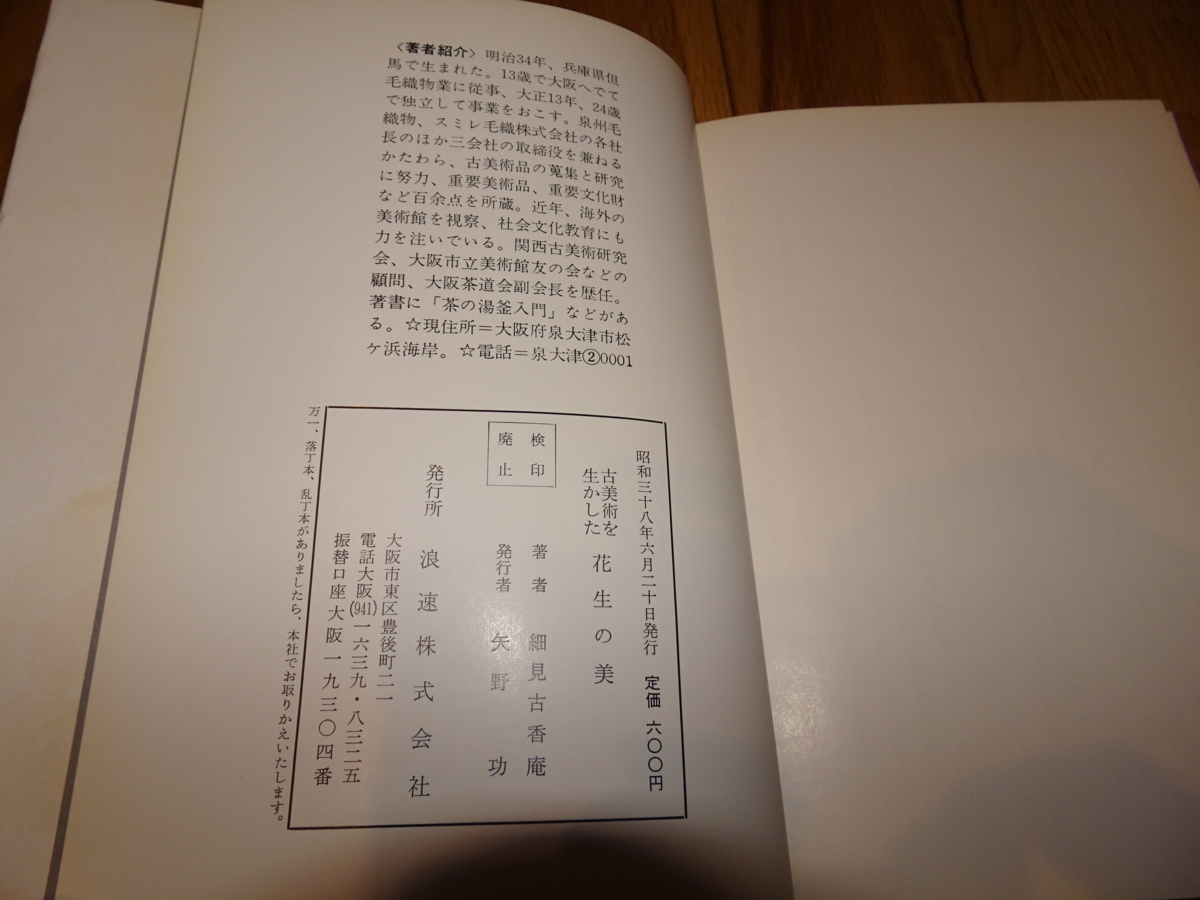 〈著者紹介〉 明治34年、兵庫県但
馬で生まれた。13歳で大阪へでて
毛織物業に従事、大正13年、24歳
で独立して事業をおこす。泉州毛
織物、スミレ毛織株式会社の各社
長のほか三会社の取締役を兼ねる
かたわら、古美術品の蒐集と研究
に努力、重要美術品、重要文化財
など百余点を所蔵。近年、海外の
美術館を視察、社会文化教育にも
力を注いでいる。関西古美術研究
会、大阪市立美術館友の会などの
顧問、大阪茶道会副会長を歴任。
著書に「茶の湯釜入門」などがあ
る。☆現住所＝大阪府泉大津市松
ケ浜海岸。☆電話＝泉大津②0001
昭和三十八年六月二十日発行 定価 六〇〇円
古美術を
生かした 花生の美
検印
廃止
著者 細見古香庵
発行者 矢野功
発行所 浪速株式会社
大阪市東区豊後町二一
電話大阪(941)一六三九・八三二五
振替口座大阪一九三〇四番
万一、落丁本、乱丁本がありましたら、本社でお取りかえいたします。